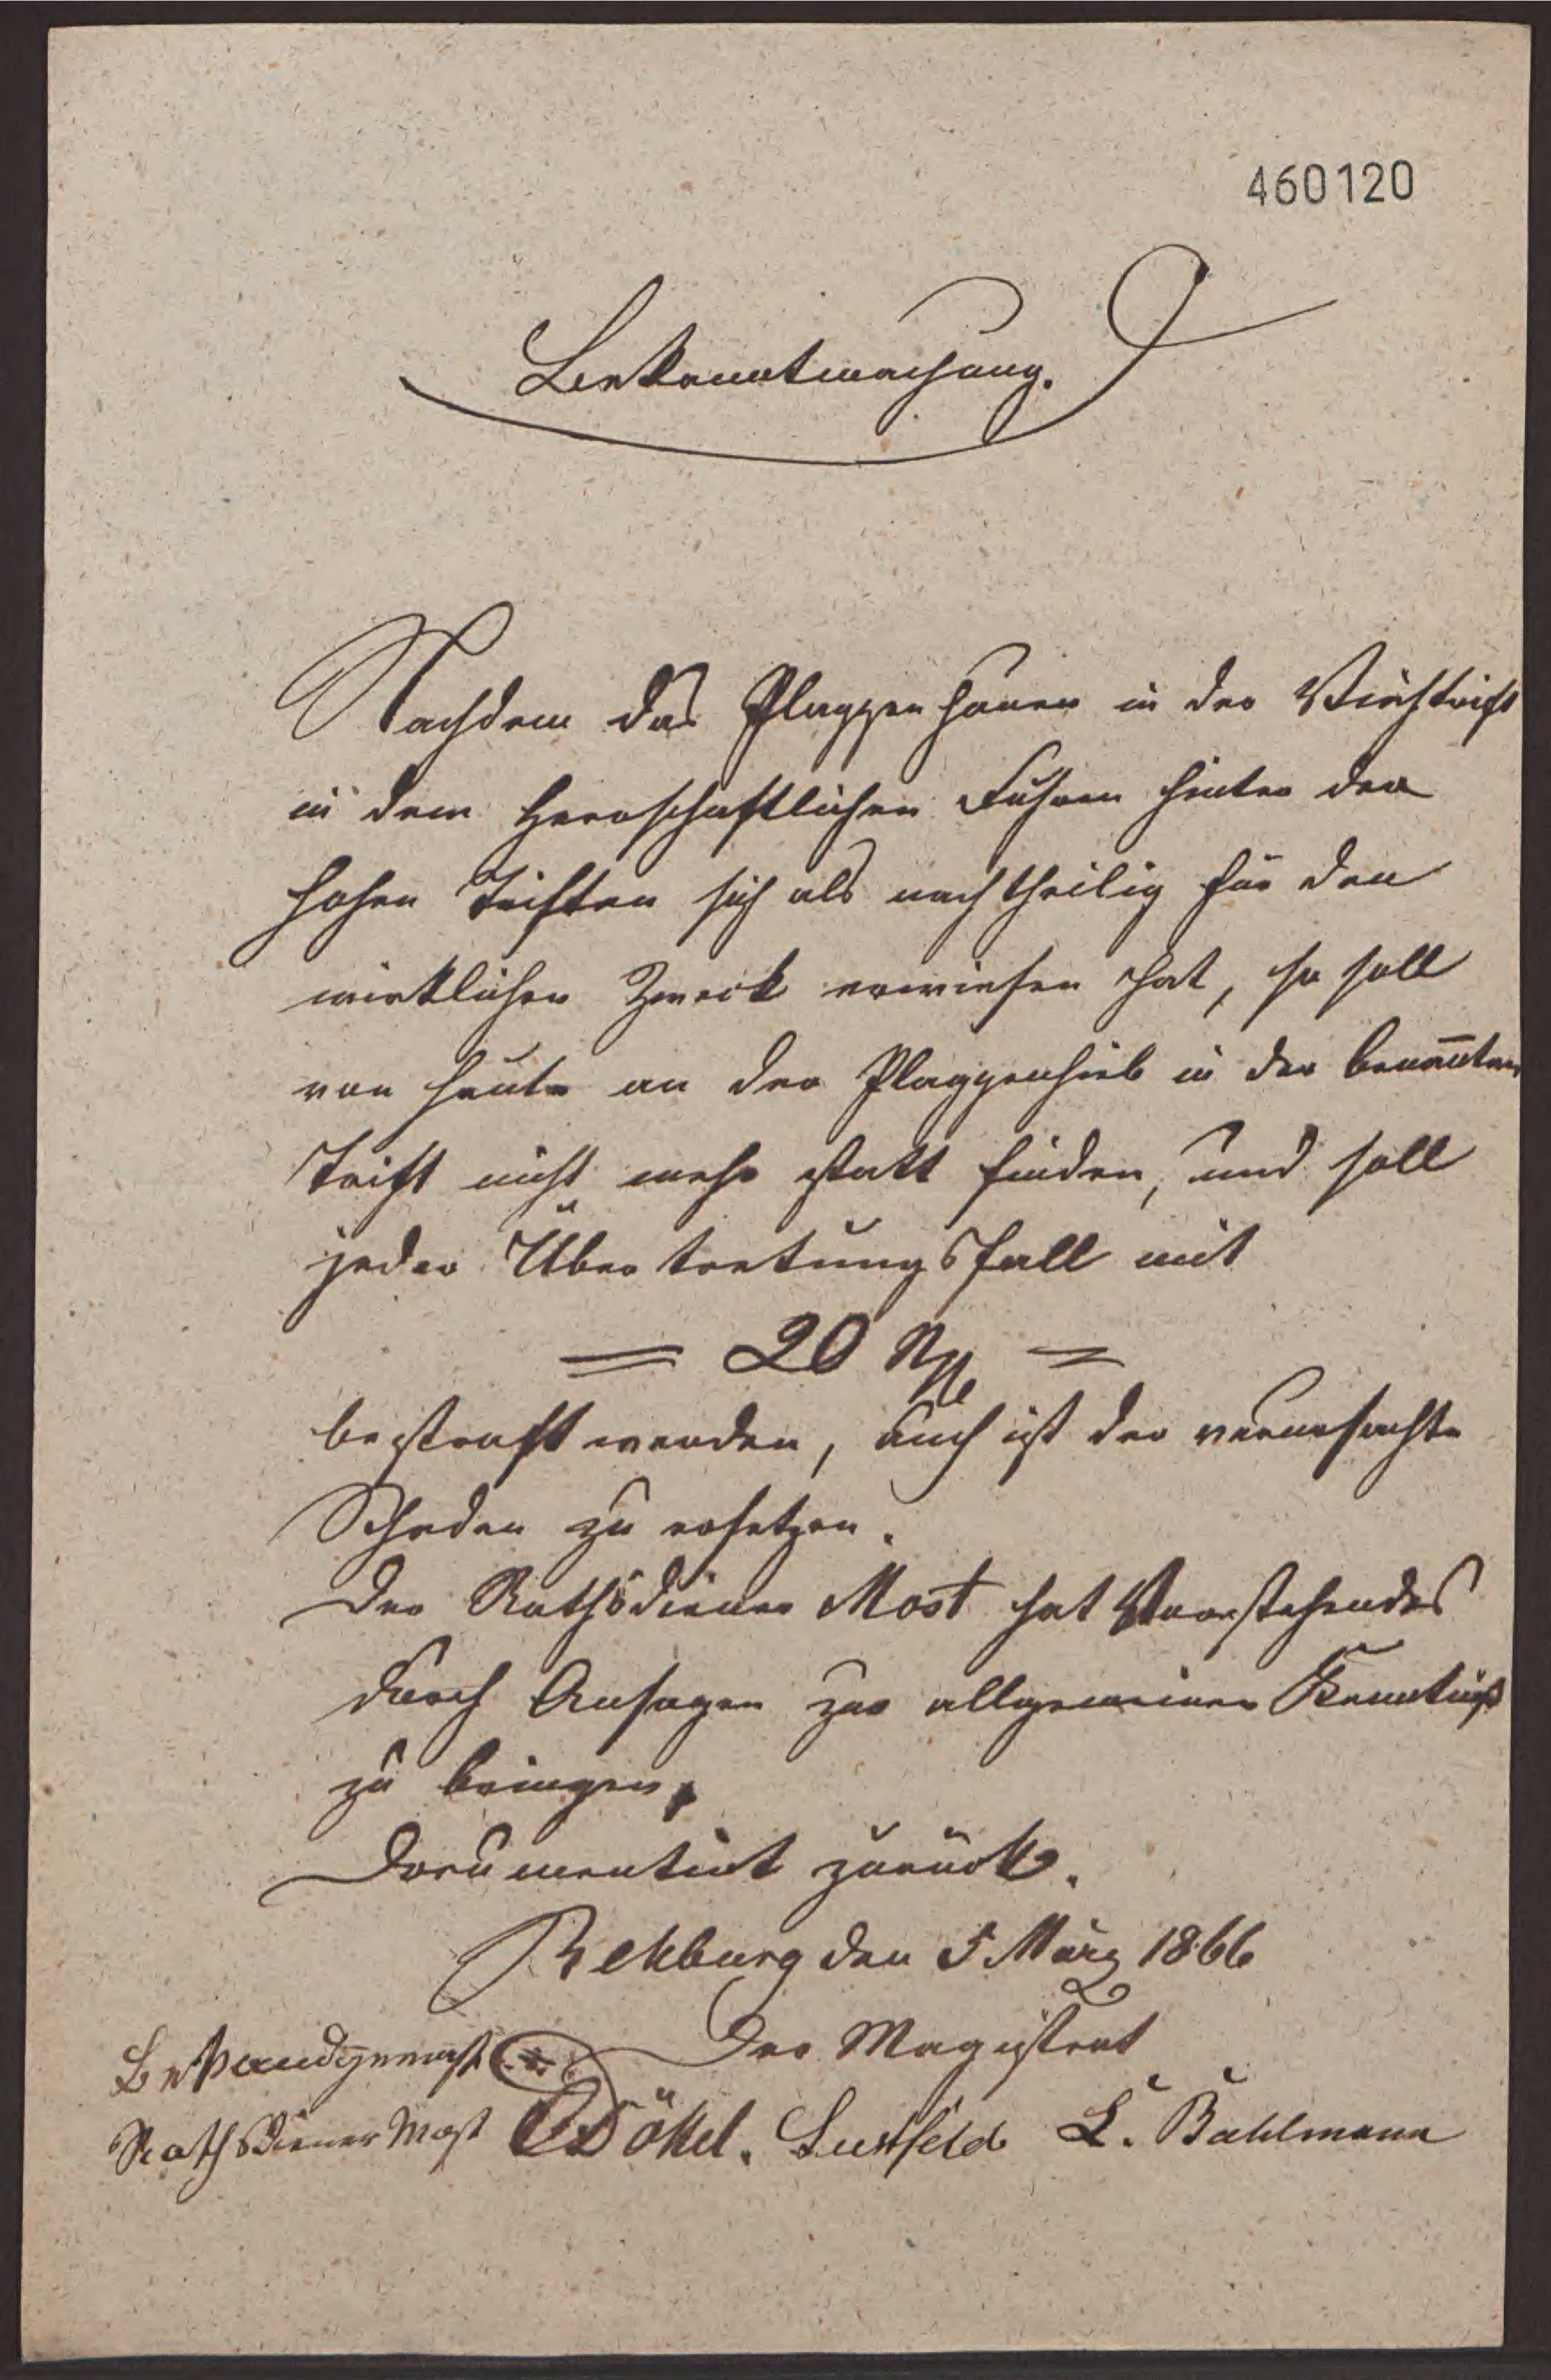 460120
Bekanntmachung.
Nachdem das Plaggenhauen in der Viehtrift
in dem Herrschaftlichen Fuhren hinter der
hohen Triften sich als nachtheilig für den
wirklichen Zweck erwiesen hat, so soll
von heute an der Plaggenhieb in der benan̄ten
Trift nicht mehr statt finden, und soll
jeder Übertretungsfall mit
= 20 =
bestraft werden, auch ist der verursachte
Schaden zu ersetzen.
Der Rathsdiener Most hat Vorstehendes
durch Ansagen zur allgemeinen Kenntniß
zu bringen,
Documentirt zurück.
Rehburg den 5 März 1866
Der Magistrat
Bekandgemacht
Rathsdiener Most
Dökel. Lustfeld L. Bahlmann